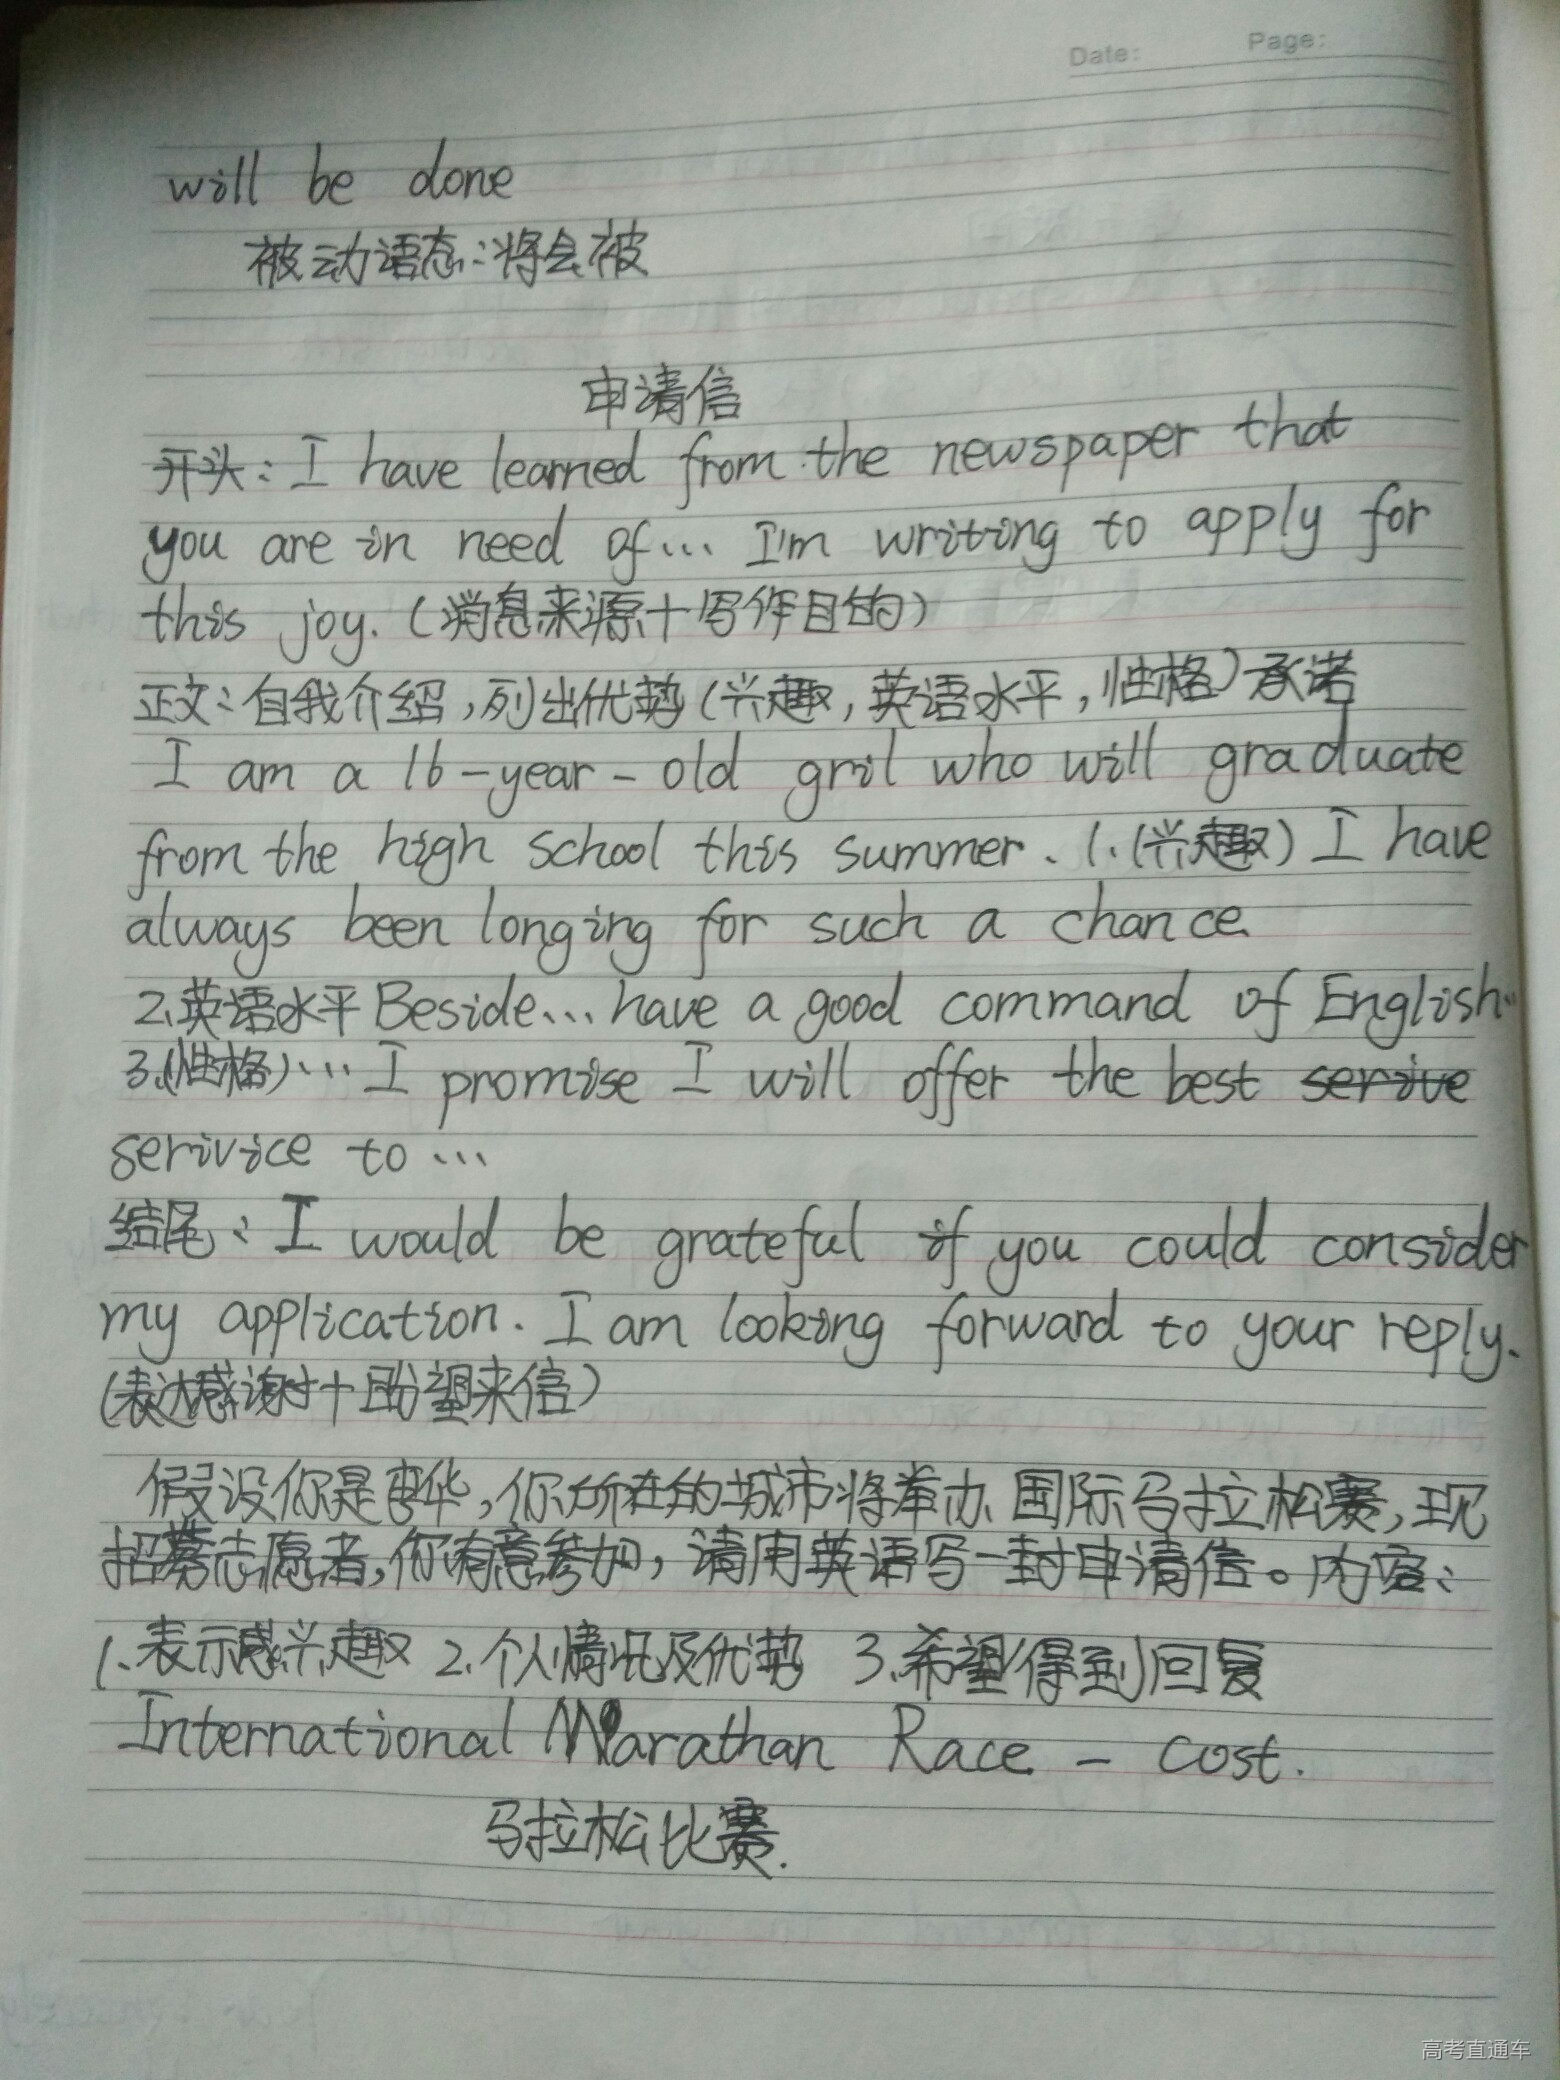 Date: Page:
will be done
被动语态:将会被
申请信
开头:I have learned from the newspaper that
you are in need of... I'm writing to apply for
this joy.(消息来源+写作目的)
正文:自我介绍,列出优势(兴趣,英语水平,性格)承诺
I am a 16-year-old gril who will graduate
from the high school this summer. 1.(兴趣) I have
always been longing for such a chance.
2.英语水平 Beside...have a good command of English..
3.(性格)... I promise I will offer the best serive
serivice to ...
结尾:I would be grateful if you could consider
my application. I am looking forward to your reply.
(表达感谢+盼望来信)
假设你是李华,你所在的城市将举办国际马拉松赛,现
招募志愿者,你有意参加,请用英语写一封申请信。内容:
1.表示感兴趣 2.个人情况及优势 3.希望得到回复
International Marathan Race - cost.
马拉松比赛.
高考直通车